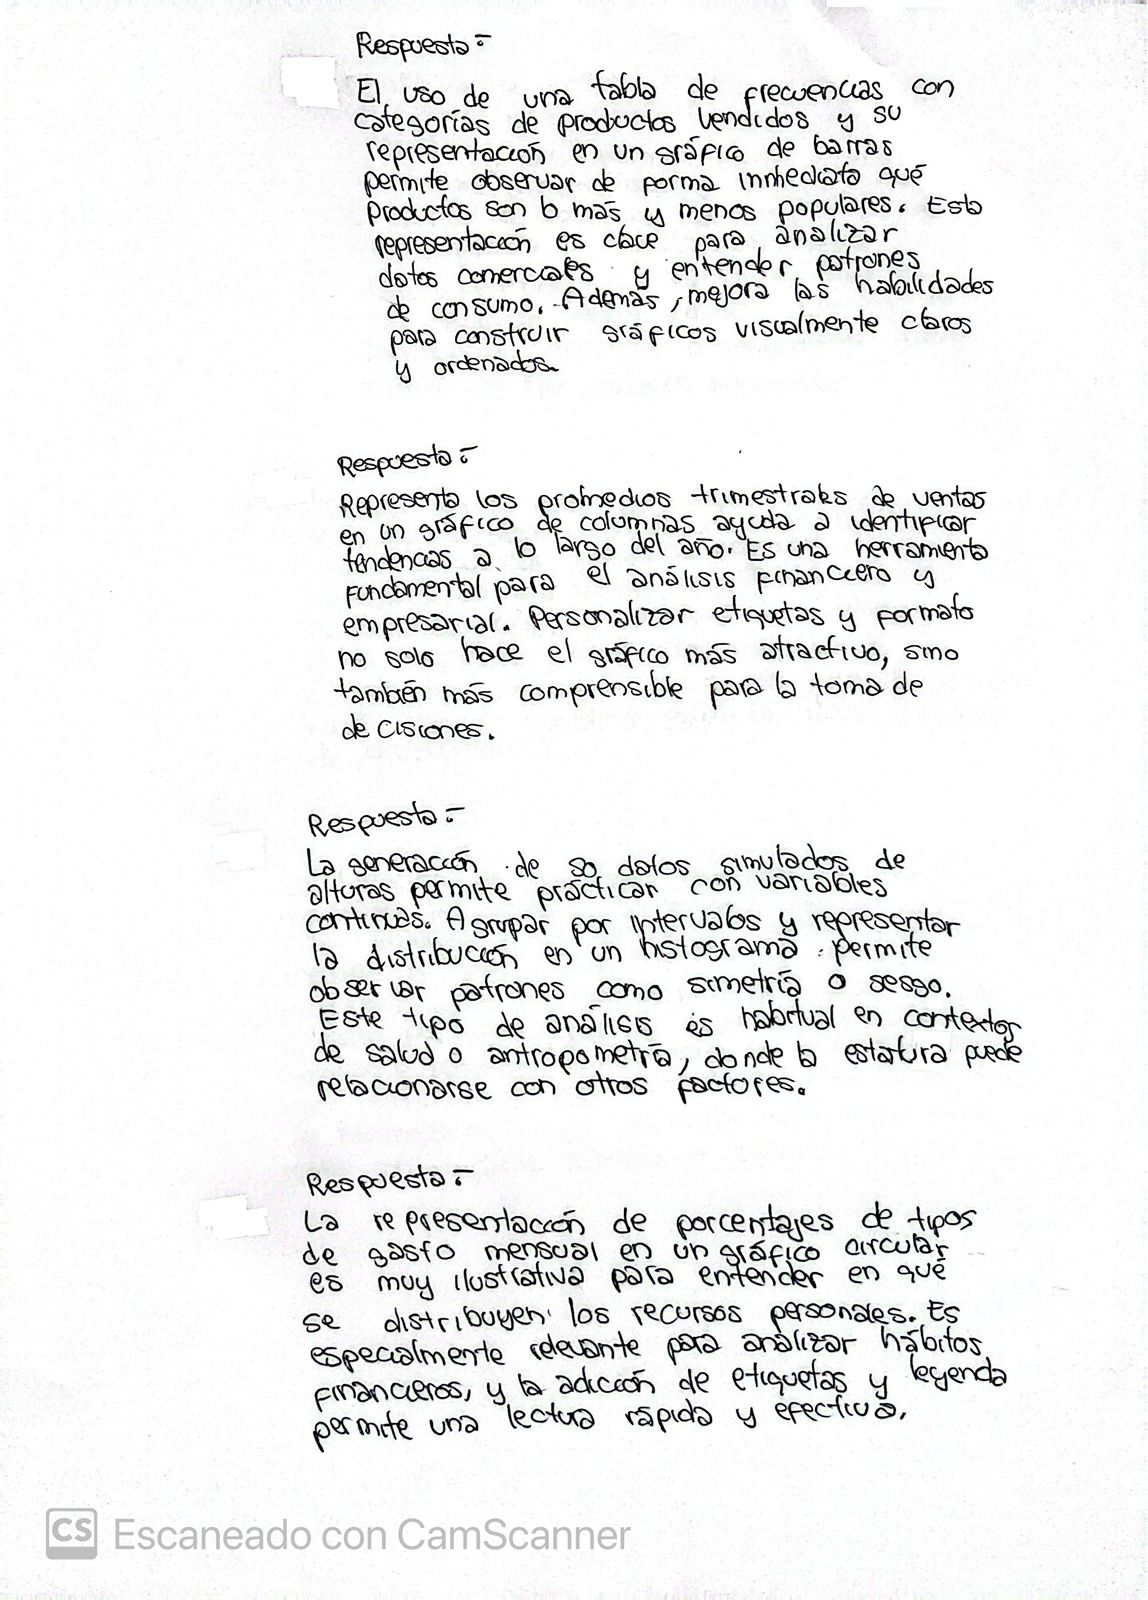 Respuesta:-
El uso de una tabla de frecuencias con
categorías de productos vendidos y su
representación en un gráfico de barras
permite observar de forma inmediata qué
productos son lo más y menos populares. Esta
representación es clave para analizar
datos comerciales y entender patrones
de consumo. Además, mejora las habilidades
para construir gráficos visualmente claros
y ordenados.
Respuesta:-
Representa los promedios trimestrales de ventas
en un gráfico de columnas ayuda a identificar
tendencias a lo largo del año. Es una herramienta
fundamental para el análisis financiero y
empresarial. Personalizar etiquetas y formato
no solo hace el gráfico más atractivo, sino
también más comprensible para la toma de
decisiones.
Respuesta:-
La generación de 50 datos simulados de
alturas permite prácticar con variables
continuas. Agrupar por intervalos y representar
la distribución en un histograma permite
observar patrones como simetría o sesgo.
Este tipo de análisis es habitual en contextos
de salud o antropometría, donde la estatura puede
relacionarse con otros factores.
Respuesta:-
La representación de porcentajes de tipos
de gasto mensual en un gráfico circular
es muy ilustrativa para entender en qué
se distribuyen los recursos personales. Es
especialmente relevante para analizar hábitos
financieros, y la adición de etiquetas y leyenda
permite una lectura rápida y efectiva.
CS Escaneado con CamScanner